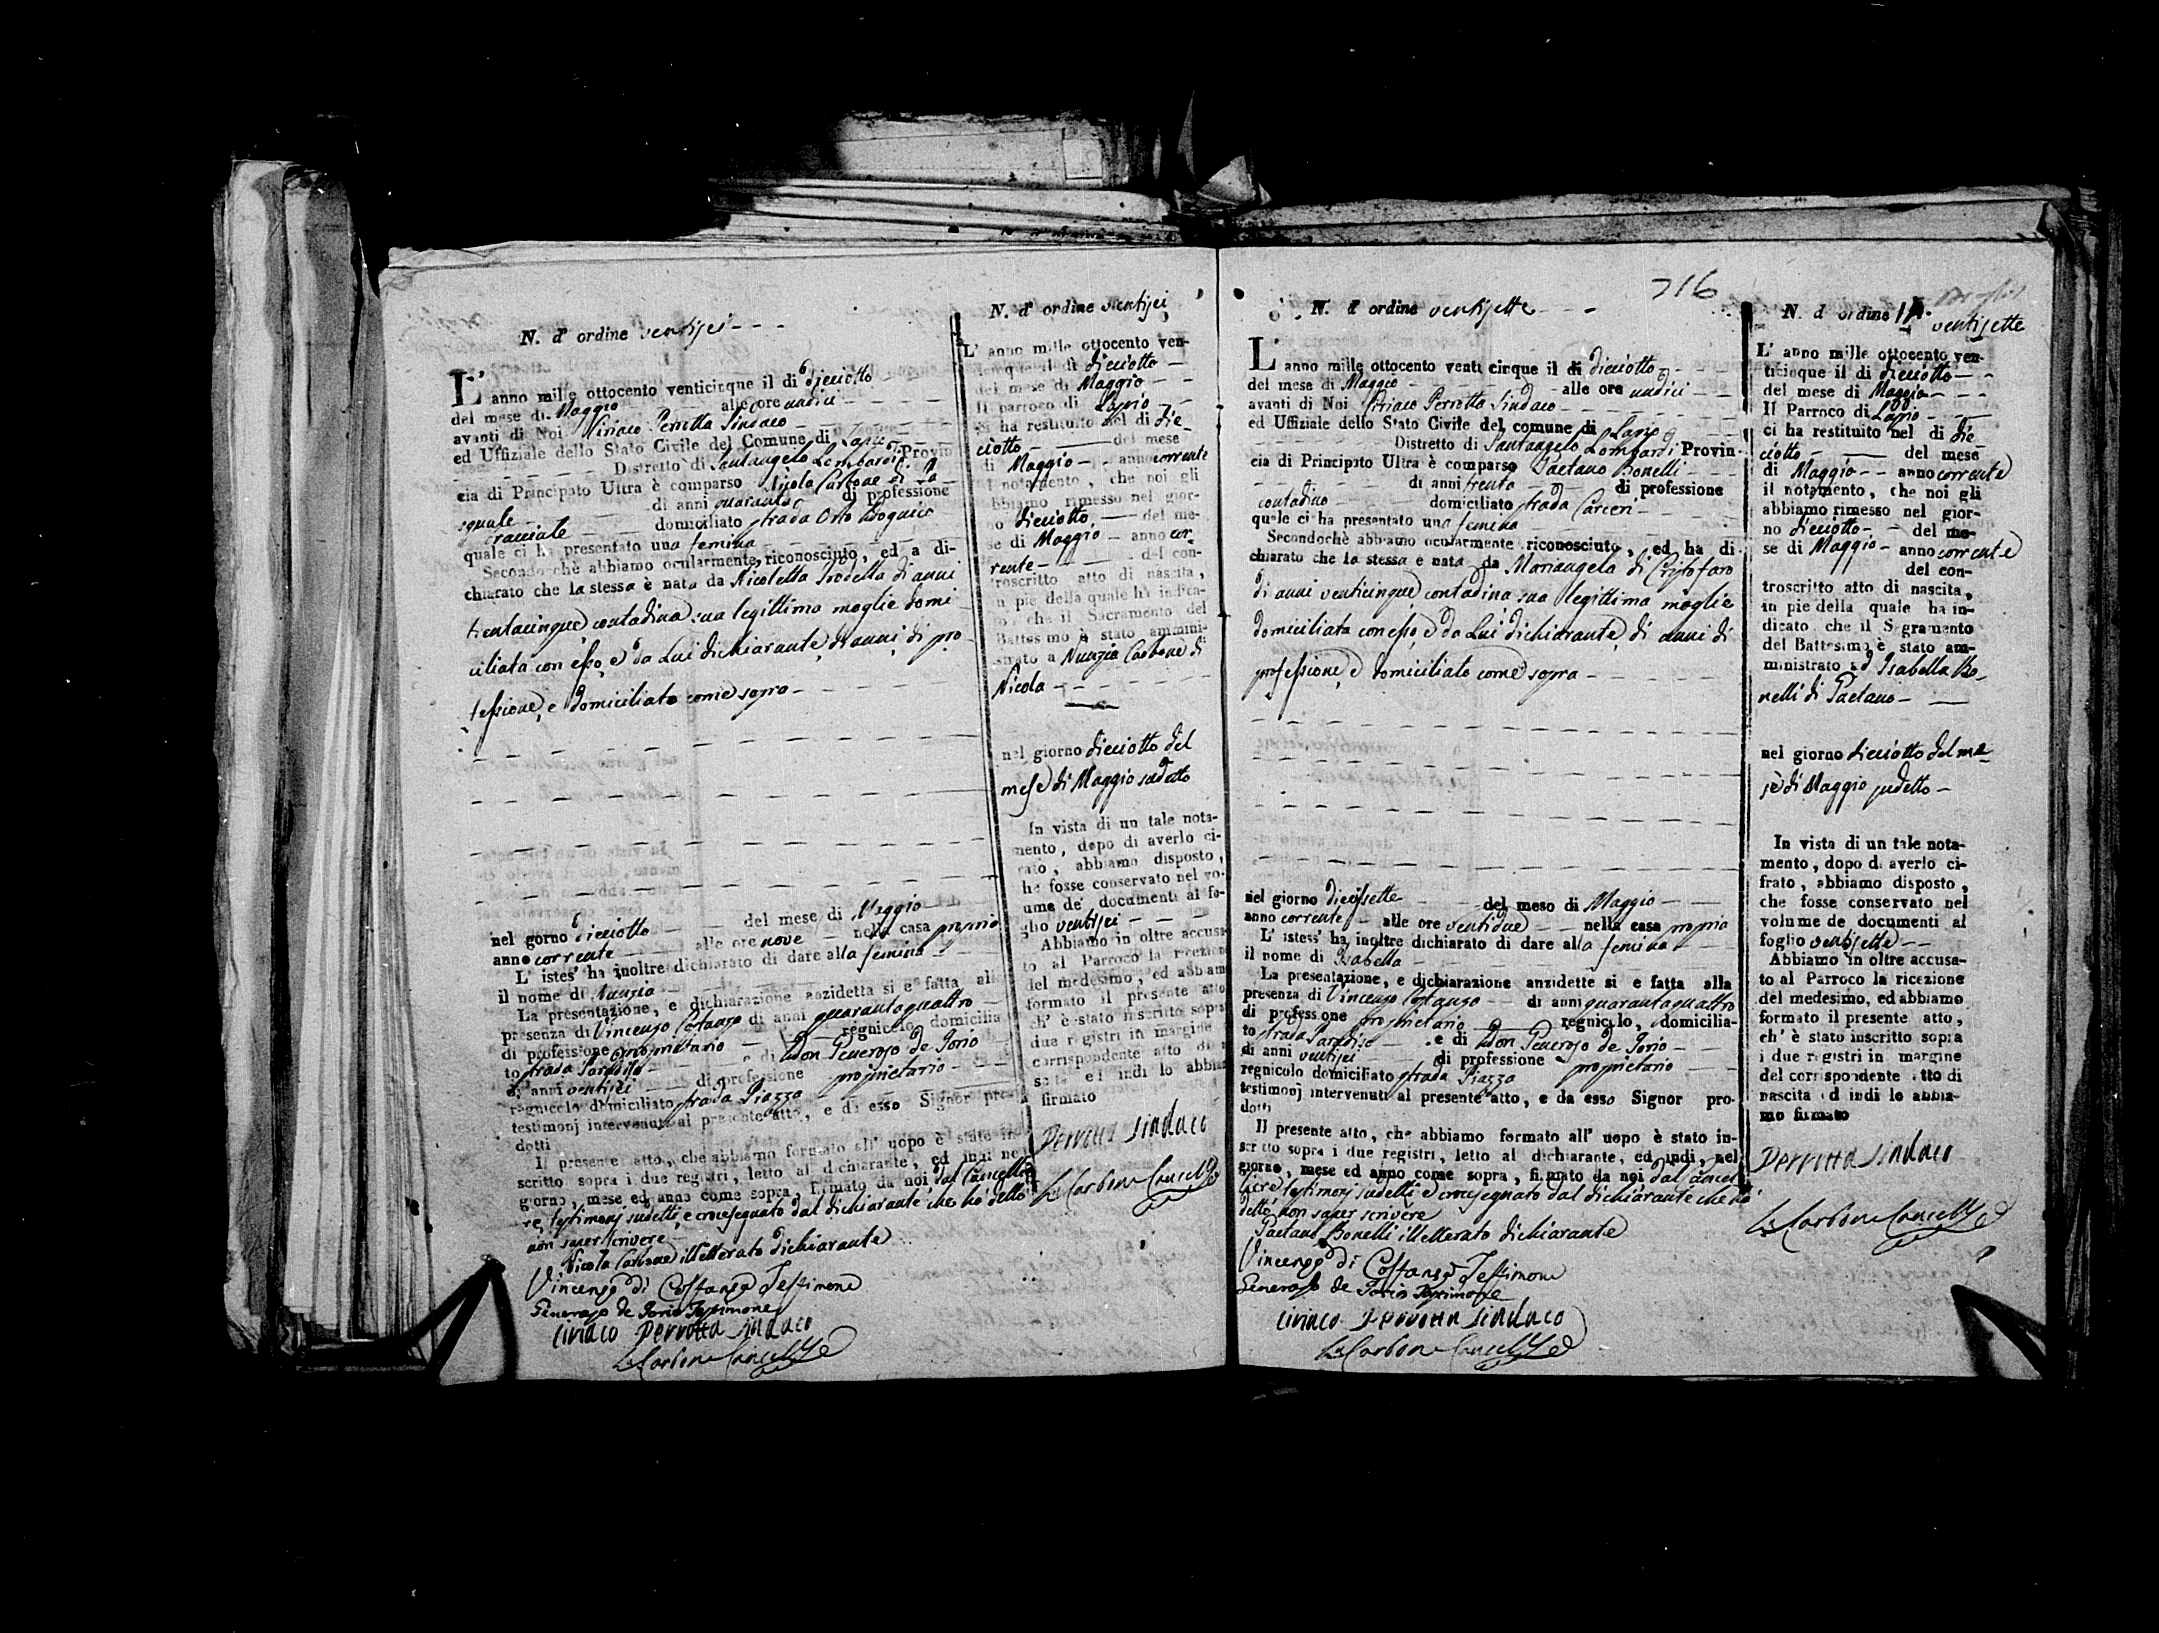 N. d' ordine ventisei
L' anno mille ottocento venticinque il di dieciotto
del mese di Maggio alle ore undici
avanti di Noi Ciriaco Perrotta Sindaco
ed Uffiziale dello Stato Civile del Comune di Lapio
Distretto di Santangelo Lombardi Provin
cia di Principato Ultra è comparso Nicola Carbone di
squale di anni quaranta di professione
bracciale domiciliato strada Orto
quale ci ha presentato una femina
Secondochè abbiamo ocularmente riconosciuto, ed a di-
chiarato che la stessa è nata da Nicoletta di anni
trentacinque contadina sua legittima moglie domi
ciliata con esso e da Lui dichiarante di anni, di pro
fessione, e domiciliato come sopra
nel gorno dieciotto del mese di Maggio
anno corrente alle ore nove nella casa propria
L' istes' ha inoltre dichiarato di dare alla femina
il nome di Nunzia
La presentazione, e dichiarazione anzidetta si è fatta alla
presenza di Vincenzo Costanzo di anni quarantaquattro
di professione proprietario regnicolo domicilia
to strada Paradiso e di Don Generoso de Iorio
di anni ventisei di professione proprietario
regnicolo domiciliato strada Piazza
testimonj intervenuti al presente atto, e da esso Signor pro
dotti
Il presente atto, che abbiamo formato all' uopo è stato in
scritto sopra i due registri, letto al dichiarante, ed indi nel
giorno, mese ed anno come sopra, firmato da noi dal Cancellie
re, testimonj sudetti, e crocesegnato dal dichiarante che ha detto
non saper scrivere
Nicola Carbone illetterato dichiarante
Vincenzo di Costanzo Testimone
Generoso de Iorio Testimone
Ciriaco Perrotta Sindaco
Carbone Cancell
N. d' ordine ventisei
L' anno mille ottocento ven-
ticinque il dì dieciotto
del mese di Maggio
Il parroco di Lapio
ci ha restituito nel di die
ciotto del mese
di Maggio anno corrente
il notamento, che noi gli
abbiamo rimesso nel gior-
no dieciotto del me-
se di Maggio anno cor
rente del con-
troscritto atto di nascita,
in pie della quale ha indica-
to, che il Sacramento del
Battesimo è stato ammini-
strato a Nunzia Carbone di
Nicola
nel giorno dieciotto del
mese di Maggio sudetto
In vista di un tale nota-
mento, dopo di averlo ci-
frato, abbiamo disposto,
che fosse conservato nel vo-
lume de' documenti al fo-
glio ventisei
Abbiamo in oltre accusa
to al Parroco la ricezione
del medesimo, ed abbiam
formato il presente atto
ch' è stato inscritto sopra
due registri in margine
corrispondente atto di
scita ed indi lo abbia
firmato
Perrotta Sindaco
Carbone Cancell
716
N. d' ordine ventisette
L' anno mille ottocento venti cinque il di dieciotto
del mese di Maggio alle ore undici
avanti di Noi Ciriaco Perrotta Sindaco
ed Uffiziale dello Stato Civile del comune di Lapio
Distretto di Santangelo Lombardi Provin-
cia di Principato Ultra è comparso Gaetano Bonelli
di anni trenta di professione
contadino domiciliato strada Carceri
quale ci ha presentato una femina
Secondochè abbiamo ocularmente riconosciuto, ed ha di
chiarato che la stessa è nata da Mariangela di Cristofaro
di anni venticinque contadina sua legittima moglie
domiciliata con esso e da Lui dichiarante, di anni di
professione, e domiciliato come sopra
nel giorno diecisette del mese di Maggio
anno corrente alle ore ventidue nella casa propria
L' istess' ha inoltre dichiarato di dare alla femina
il nome di Isabella
La presentazione, e dichiarazione anzidette si è fatta alla
presenza di Vincenzo Costanzo di anni quarantaquattro
di professione proprietario regnicolo, domicilia-
to strada Paradiso e di Don Generoso de Iorio
di anni ventisei di professione proprietario
regnicolo domiciliato strada Piazza
testimonj intervenuti al presente atto, e da esso Signor pro-
dotti
Il presente atto, che abbiamo formato all' uopo è stato in-
scritto sopra i due registri, letto al dichiarante, ed indi, nel
giorno, mese ed anno come sopra, firmato da noi dal Cancel
liere testimonj sudetti e crocesegnato dal dichiarante che ha
detto non saper scrivere
Gaetano Bonelli illetterato dichiarante
Vincenzo di Costanzo Testimone
Generoso de Iorio Testimone
Ciriaco Perrotta Sindaco
Carbone Cancell
N. d' ordine
ventisette
L' anno mille ottocento ven-
ticinque il di dieciotto
del mese di Maggio
Il Parroco di Lapio
ci ha restituito nel di die
ciotto del mese
di Maggio anno corrente
il notamento, che noi gli
abbiamo rimesso nel gior-
no dieciotto del me-
se di Maggio anno corrente
del con-
troscritto atto di nascita,
in pie della quale ha in-
dicato che il Sagramento
del Battesimo è stato am-
ministrato ad Isabella Bo
nelli di Gaetano
nel giorno dieciotto del me
se di Maggio sudetto
In vista di un tale nota-
mento, dopo di averlo ci-
frato, abbiamo disposto,
che fosse conservato nel
volume de documenti al
foglio ventisette
Abbiamo in oltre accusa-
to al Parroco la ricezione
del medesimo, ed abbiamo
formato il presente atto,
ch' è stato inscritto sopra
i due registri in margine
del corrispondente atto di
nascita ed indi lo abbia-
mo firmato
Perrotta Sindaco
Carbone Cancell